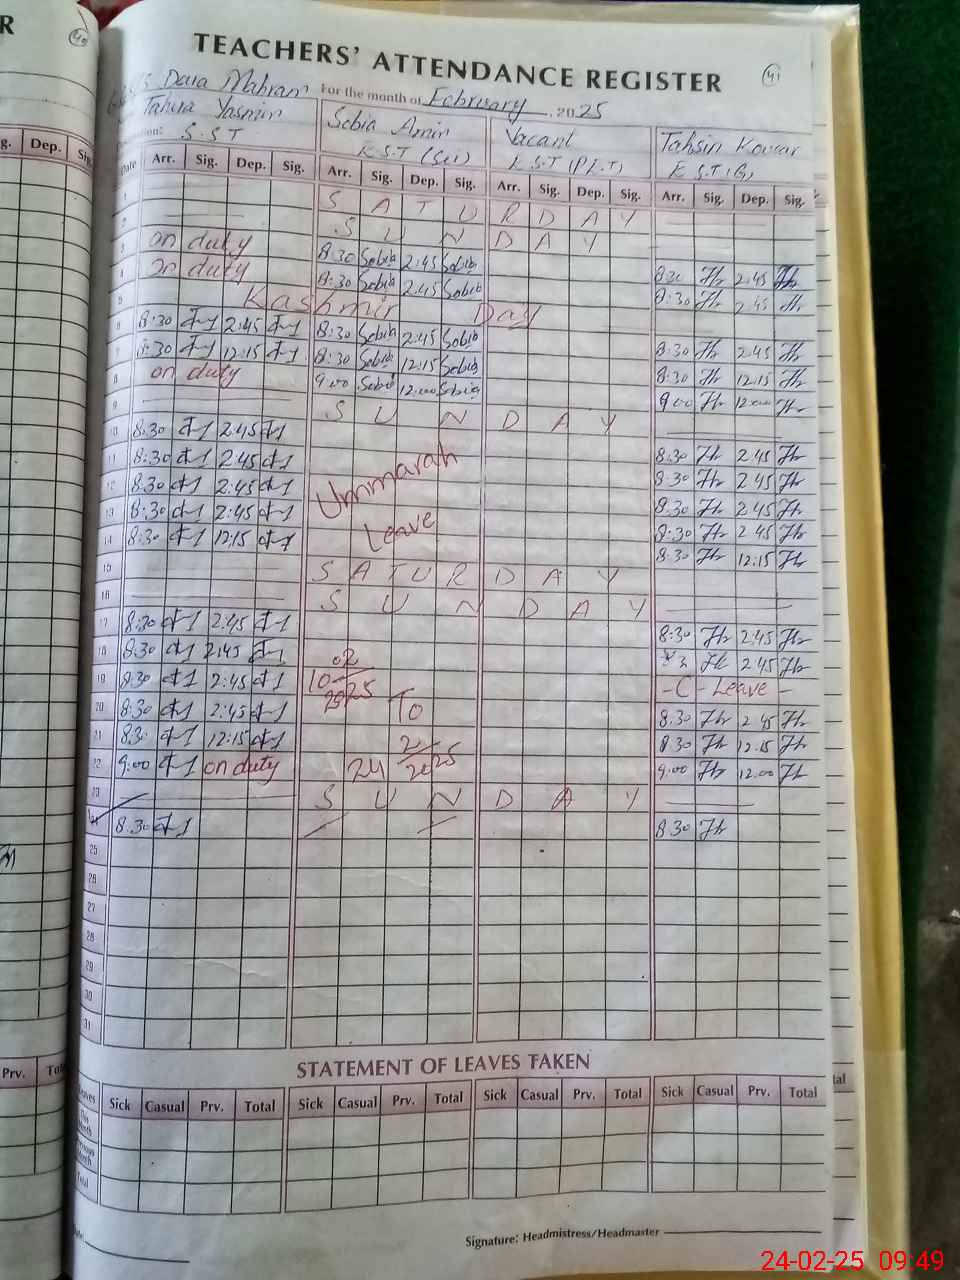 R
40
TEACHERS' ATTENDANCE REGISTER
41
Dara Mahram For the month of February, 2025
Tahira Yasmin Sobia Amin Vacant Tahsin Kousar
S.ST E.S.T (Sci) E.S.T (P.E.T) E.S.T(G)
g. Dep. Sig.
Date Arr. Sig. Dep. Sig. Arr. Sig. Dep. Sig. Arr. Sig. Dep. Sig. Arr. Sig. Dep. Sig.
1 S A T U R D A Y
2 S U N D A Y
3 on duty 8:30 Sobia 2:45 Sobia 8:30 2:45
4 on duty 8:30 Sobia 2:45 Sobia 8:30 2:45
5 Kashmir Day
6 8:30 2:45 8:30 Sobia 2:45 Sobia 8:30 2:45
7 8:30 12:15 8:30 Sobia 12:15 Sobia 8:30 12:15
8 on duty 9:00 Sobia 12:00 Sobia 9:00 12:00
9 S U N D A Y
10 8:30 2:45 8:30 2:45
11 8:30 2:45 8:30 2:45
12 8:30 2:45 Ummarah 8:30 2:45
13 8:30 2:45 Leave 8:30 2:45
14 8:30 12:15 8:30 12:15
15 S A T U R D A Y
16 S U N D A Y
17 8:30 2:45 8:30 2:45
18 8:30 2:45 2:45
19 8:30 2:45 10 02 2025 - C - Leave -
20 8:30 2:45 To 8:30 2:45
21 8:30 12:15 8:30 12:15
22 9:00 on duty 24 2 2025 9:00 12:00
23 S U N D A Y
24 8:30 8:30
25
26
27
28
29
30
31
STATEMENT OF LEAVES TAKEN
Prv. Tot
Leaves Sick Casual Prv. Total Sick Casual Prv. Total Sick Casual Prv. Total Sick Casual Prv. Total
This Month
Previous Month
Total
Date: Signature: Headmistress/Headmaster
24-02-25 09:49